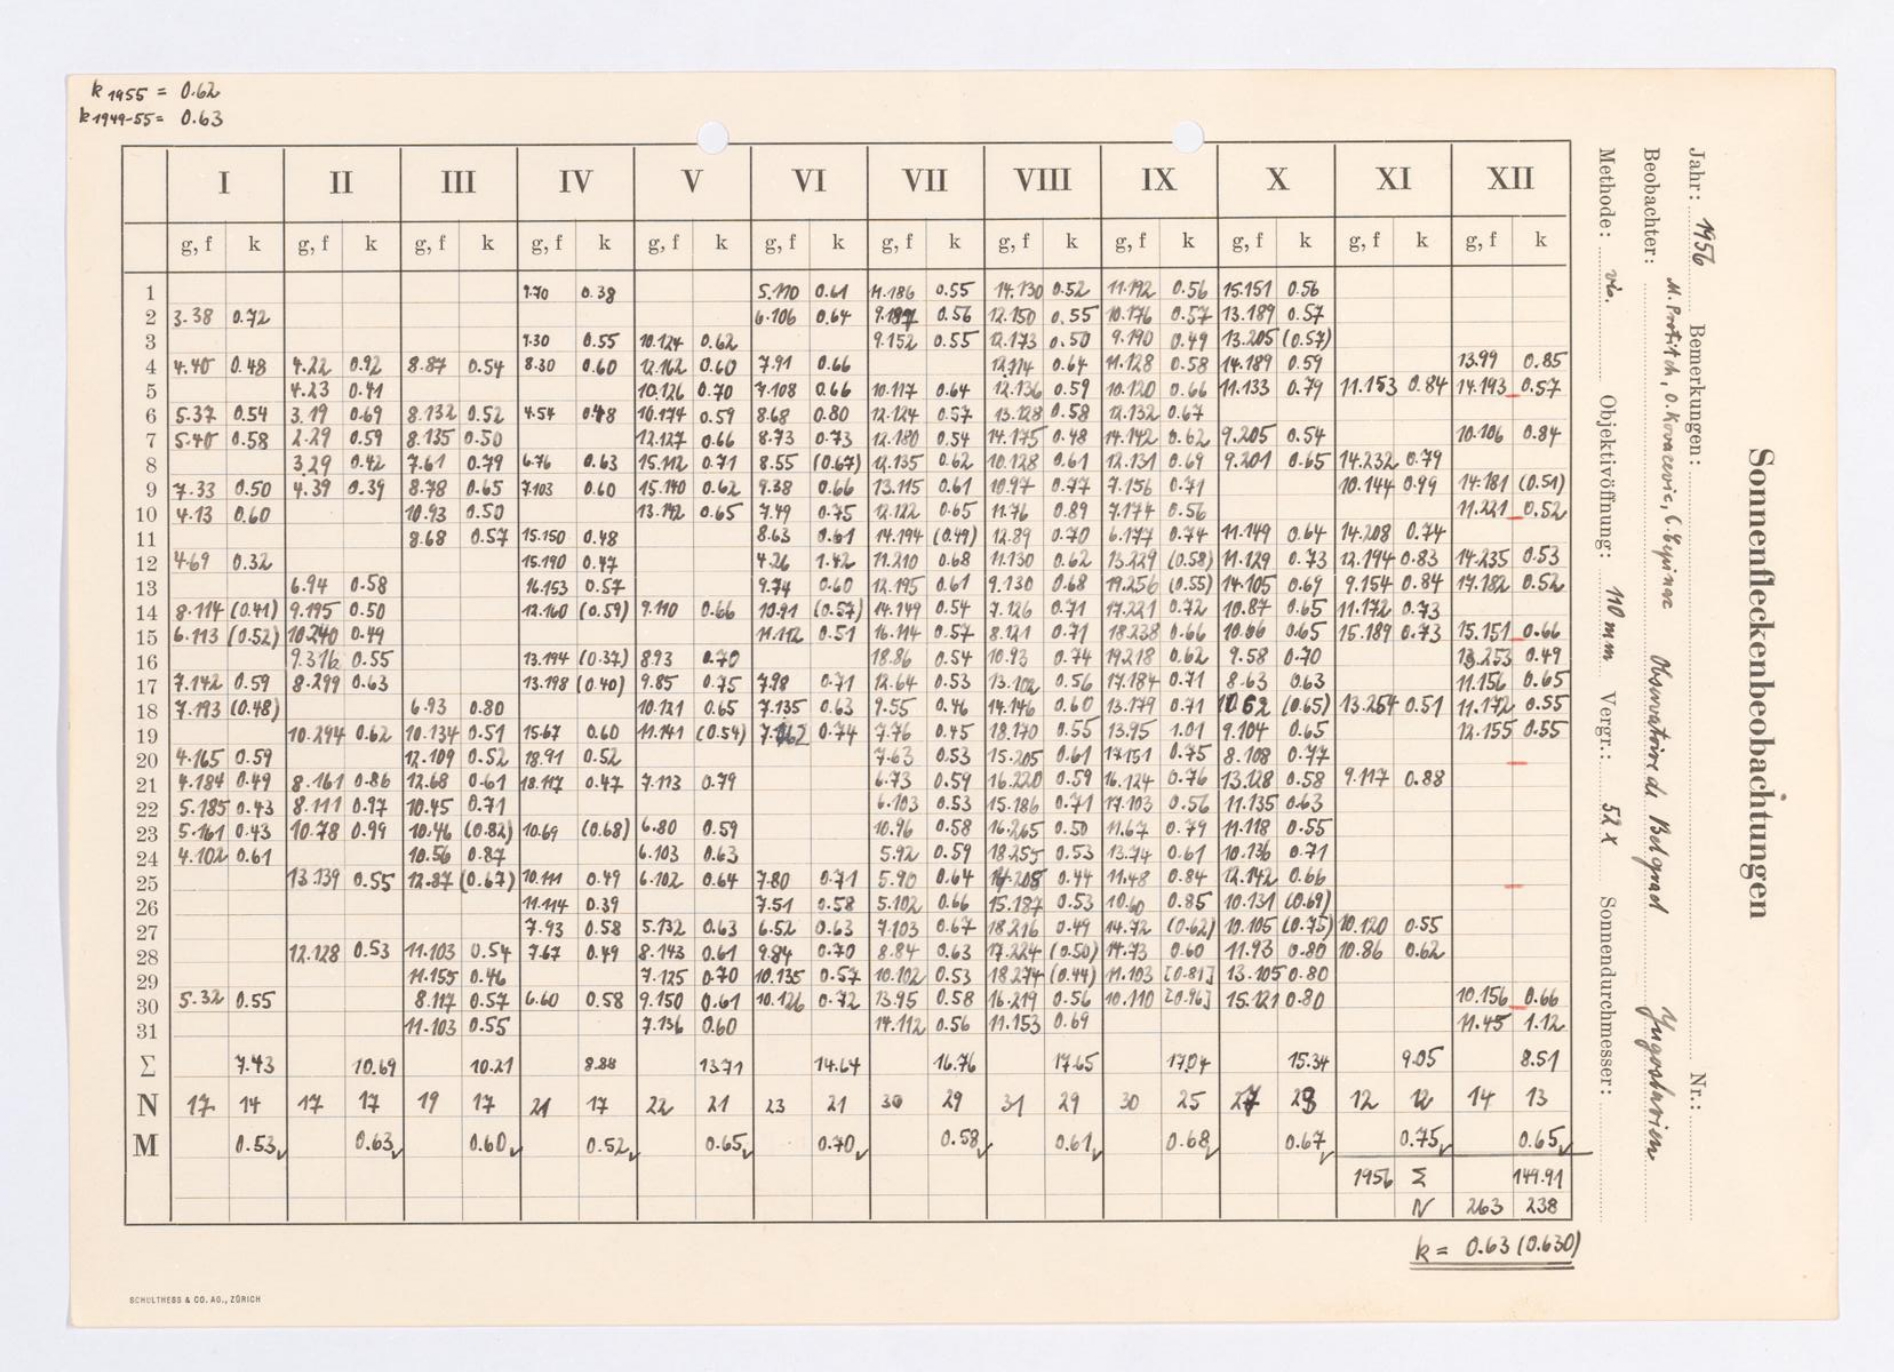 k 1955 = 0.62
k 1949-55 = 0.63
I II III IV V VI VII VIII IX X XI XII
g, f k g, f k g, f k g, f k g, f k g, f k g, f k g, f k g, f k g, f k g, f k g, f k
1 1.70 0.38 5.110 0.61 11.186 0.55 14.130 0.52 11.192 0.56 15.151 0.56
2 3.38 0.72 6.106 0.64 0.56 12.150 0.55 10.176 0.57 13.189 0.57
3 1.30 0.55 10.124 0.62 9.152 0.55 12.173 0.50 9.190 0.49 13.205 (0.57)
4 4.40 0.48 4.22 0.92 8.87 0.54 8.30 0.60 12.162 0.60 7.91 0.66 0.64 11.128 0.58 14.189 0.59 13.99 0.85
5 4.23 0.41 10.126 0.70 7.108 0.66 10.117 0.64 12.136 0.59 10.120 0.66 11.133 0.79 11.153 0.84 14.193 0.57
6 5.37 0.54 3.19 0.69 8.132 0.52 4.54 0.48 10.174 0.59 8.68 0.80 12.124 0.57 13.128 0.58 12.132 0.67
7 5.40 0.58 2.29 0.59 8.135 0.50 12.127 0.66 8.73 0.73 12.180 0.54 14.175 0.48 14.142 0.62 9.205 0.54 10.106 0.84
8 3.29 0.42 7.61 0.79 6.76 0.63 15.112 0.71 8.55 (0.67) 12.135 0.62 10.128 0.61 12.131 0.69 9.201 0.65 14.232 0.79
9 7.33 0.50 4.39 0.39 8.78 0.65 7.103 0.60 15.140 0.62 9.38 0.66 13.115 0.61 10.97 0.77 7.156 0.71 10.144 0.99 14.181 (0.51)
10 4.13 0.60 10.93 0.50 13.142 0.65 7.49 0.75 12.122 0.65 11.76 0.89 7.174 0.56 11.221 0.52
11 8.68 0.57 15.150 0.48 8.63 0.61 14.194 (0.49) 12.89 0.70 6.177 0.74 11.149 0.64 14.208 0.74
12 4.69 0.32 15.190 0.47 4.26 1.42 11.210 0.68 11.130 0.62 13.229 (0.58) 11.129 0.73 12.194 0.83 14.235 0.53
13 6.94 0.58 16.153 0.57 9.74 0.60 12.195 0.61 9.130 0.68 19.256 (0.55) 14.105 0.69 9.154 0.84 17.182 0.52
14 8.114 (0.41) 9.195 0.50 12.160 (0.59) 9.110 0.66 10.91 (0.57) 14.149 0.54 7.126 0.71 17.221 0.72 10.87 0.65 11.172 0.73
15 6.113 (0.52) 10.240 0.49 11.112 0.51 16.114 0.57 8.121 0.71 18.238 0.66 10.66 0.65 15.189 0.73 15.151 0.66
16 9.316 0.55 13.194 (0.37) 8.93 0.70 18.86 0.54 10.93 0.74 19.218 0.62 9.58 0.70 13.253 0.49
17 7.142 0.59 8.299 0.63 13.198 (0.40) 9.85 0.75 7.98 0.71 12.64 0.53 13.102 0.56 17.184 0.71 8.63 0.63 11.156 0.65
18 7.193 (0.48) 6.93 0.80 10.121 0.65 7.135 0.63 9.55 0.46 14.146 0.60 13.179 0.71 10.62 (0.65) 13.254 0.51 11.172 0.55
19 10.294 0.62 10.134 0.51 15.67 0.60 11.141 (0.54) 0.74 7.76 0.45 18.170 0.55 13.95 1.01 9.104 0.65 12.155 0.55
20 4.165 0.59 12.109 0.52 18.91 0.52 7.63 0.53 15.205 0.61 17.151 0.75 8.108 0.77
21 4.184 0.49 8.161 0.86 12.68 0.61 18.117 0.47 7.113 0.79 6.73 0.59 16.220 0.59 16.124 0.76 13.128 0.58 9.117 0.88
22 5.185 0.43 8.111 0.97 10.45 0.71 6.103 0.53 15.186 0.71 17.103 0.56 11.135 0.63
23 5.161 0.43 10.78 0.99 10.46 (0.82) 10.69 (0.68) 6.80 0.59 10.96 0.58 16.265 0.50 11.67 0.79 11.118 0.55
24 4.102 0.61 10.56 0.87 6.103 0.63 5.92 0.59 18.255 0.53 13.74 0.61 10.136 0.71
25 13.139 0.55 12.87 (0.67) 10.111 0.49 6.102 0.64 7.80 0.71 5.90 0.64 14.208 0.44 11.48 0.84 12.142 0.66
26 11.114 0.39 7.51 0.58 5.102 0.66 15.187 0.53 10.60 0.85 10.131 (0.69)
27 7.93 0.58 5.132 0.63 6.52 0.63 7.103 0.67 18.216 0.49 14.72 (0.62) 10.105 (0.75) 10.120 0.55
28 12.128 0.53 11.103 0.54 7.67 0.49 8.143 0.61 9.84 0.70 8.84 0.63 17.224 (0.50) 14.73 0.60 11.93 0.80 10.86 0.62
29 11.155 0.46 7.125 0.70 10.135 0.57 10.102 0.53 18.274 (0.44) 11.103 [0.81] 13.105 0.80
30 5.32 0.55 8.117 0.57 6.60 0.58 9.150 0.61 10.126 0.72 13.95 0.58 16.219 0.56 10.110 [0.96] 15.121 0.80 10.156 0.66
31 11.103 0.55 7.136 0.60 14.112 0.56 11.153 0.69 11.45 1.12
Σ 7.43 10.69 10.21 8.88 13.71 14.64 16.76 17.65 17.04 15.34 9.05 8.51
N 17 14 17 17 19 17 21 17 22 21 23 21 30 29 31 29 30 25 27 23 12 12 14 13
M 0.53 0.63 0.60 0.52 0.65 0.70 0.58 0.61 0.68 0.67 0.75 0.65
1956 Σ 149.91
N 263 238
k = 0.63 (0.630)
SCHULTHESS & CO. AG., ZÜRICH
Sonnenfleckenbeobachtungen
Jahr: 1956 Bemerkungen: Nr.:
Beobachter: M. Protitch, O. Kovacevic, Observatoire de Belgrad Yugoslavien
Methode: vis. Objektivöffnung: 110 mm Vergr.: 52 x Sonnendurchmesser: